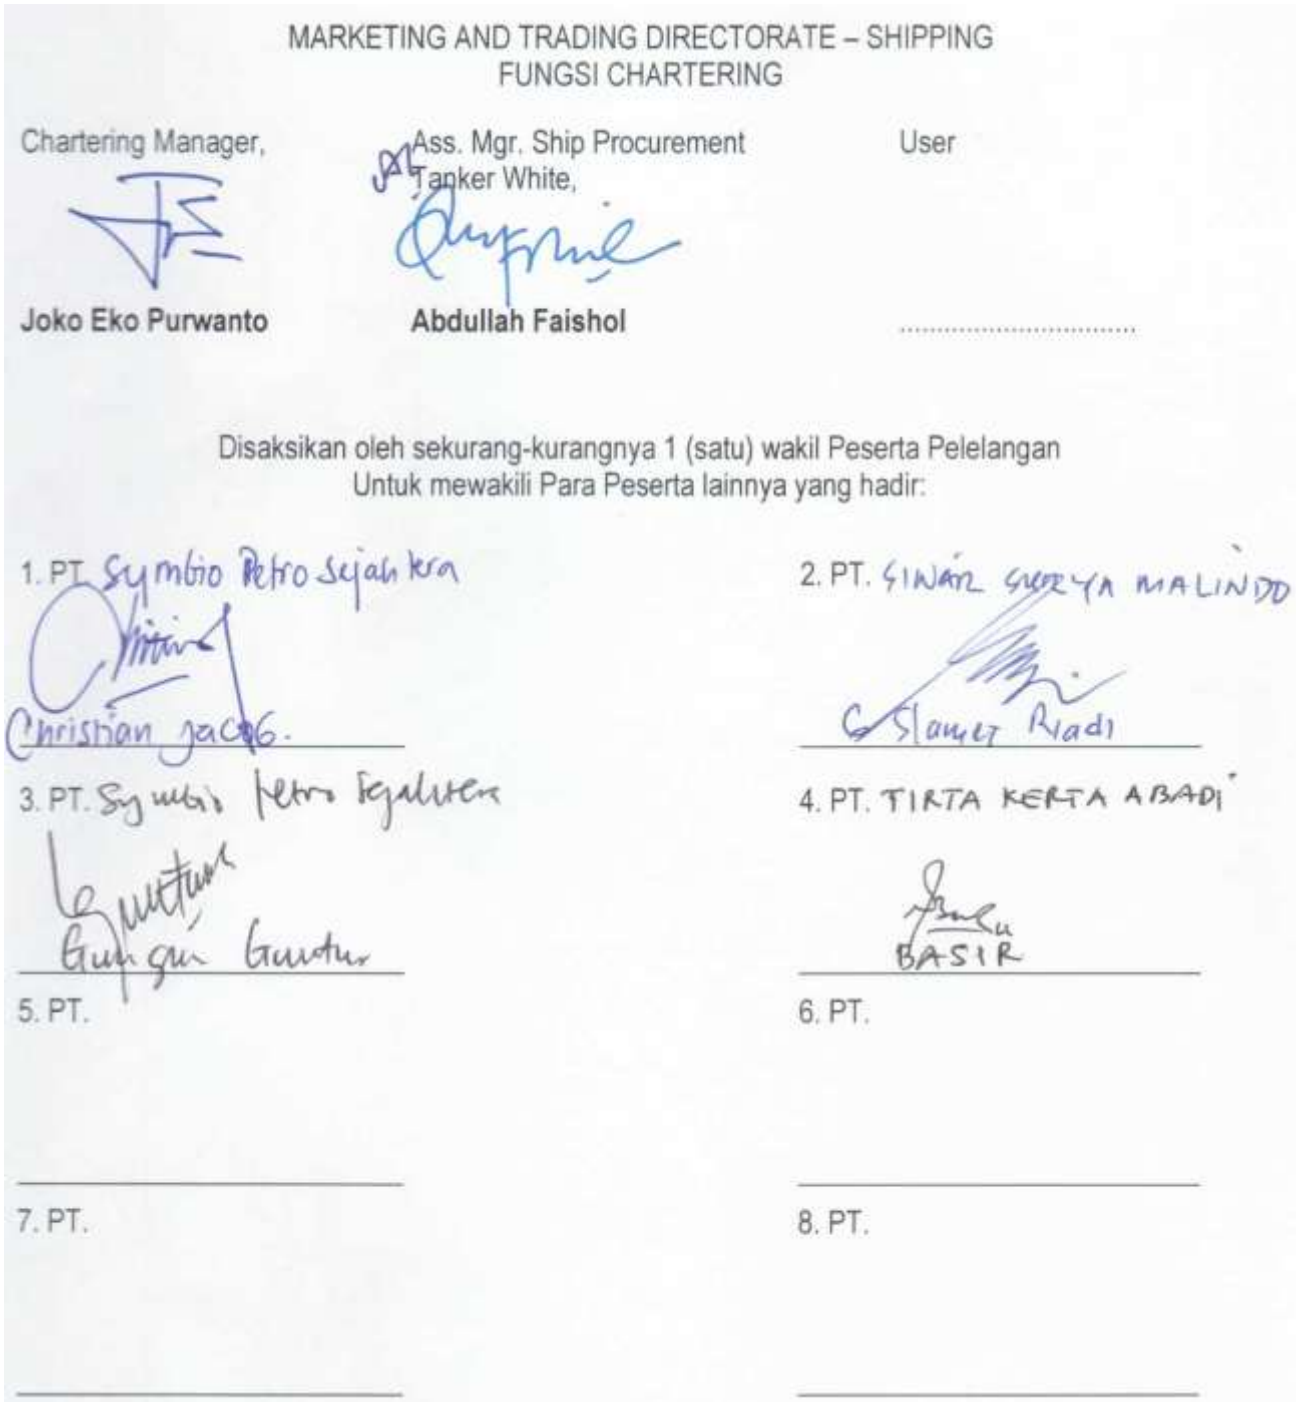 MARKETING AND TRADING DIRECTORATE – SHIPPING
FUNGSI CHARTERING
Chartering Manager,
Ass. Mgr. Ship Procurement
Tanker White,
User
Joko Eko Purwanto
Abdullah Faishol
..............................
Disaksikan oleh sekurang-kurangnya 1 (satu) wakil Peserta Pelelangan
Untuk mewakili Para Peserta lainnya yang hadir:
1. PT. Symbio Petro Sejahtera
Christian Jacob.
2. PT. SINAR SURYA MALINDO
Slamet Riadi
3. PT. Symbio Petro Sejahtera
Guntur
4. PT. TIRTA KERTA ABADI
BASIR
5. PT.
6. PT.
7. PT.
8. PT.